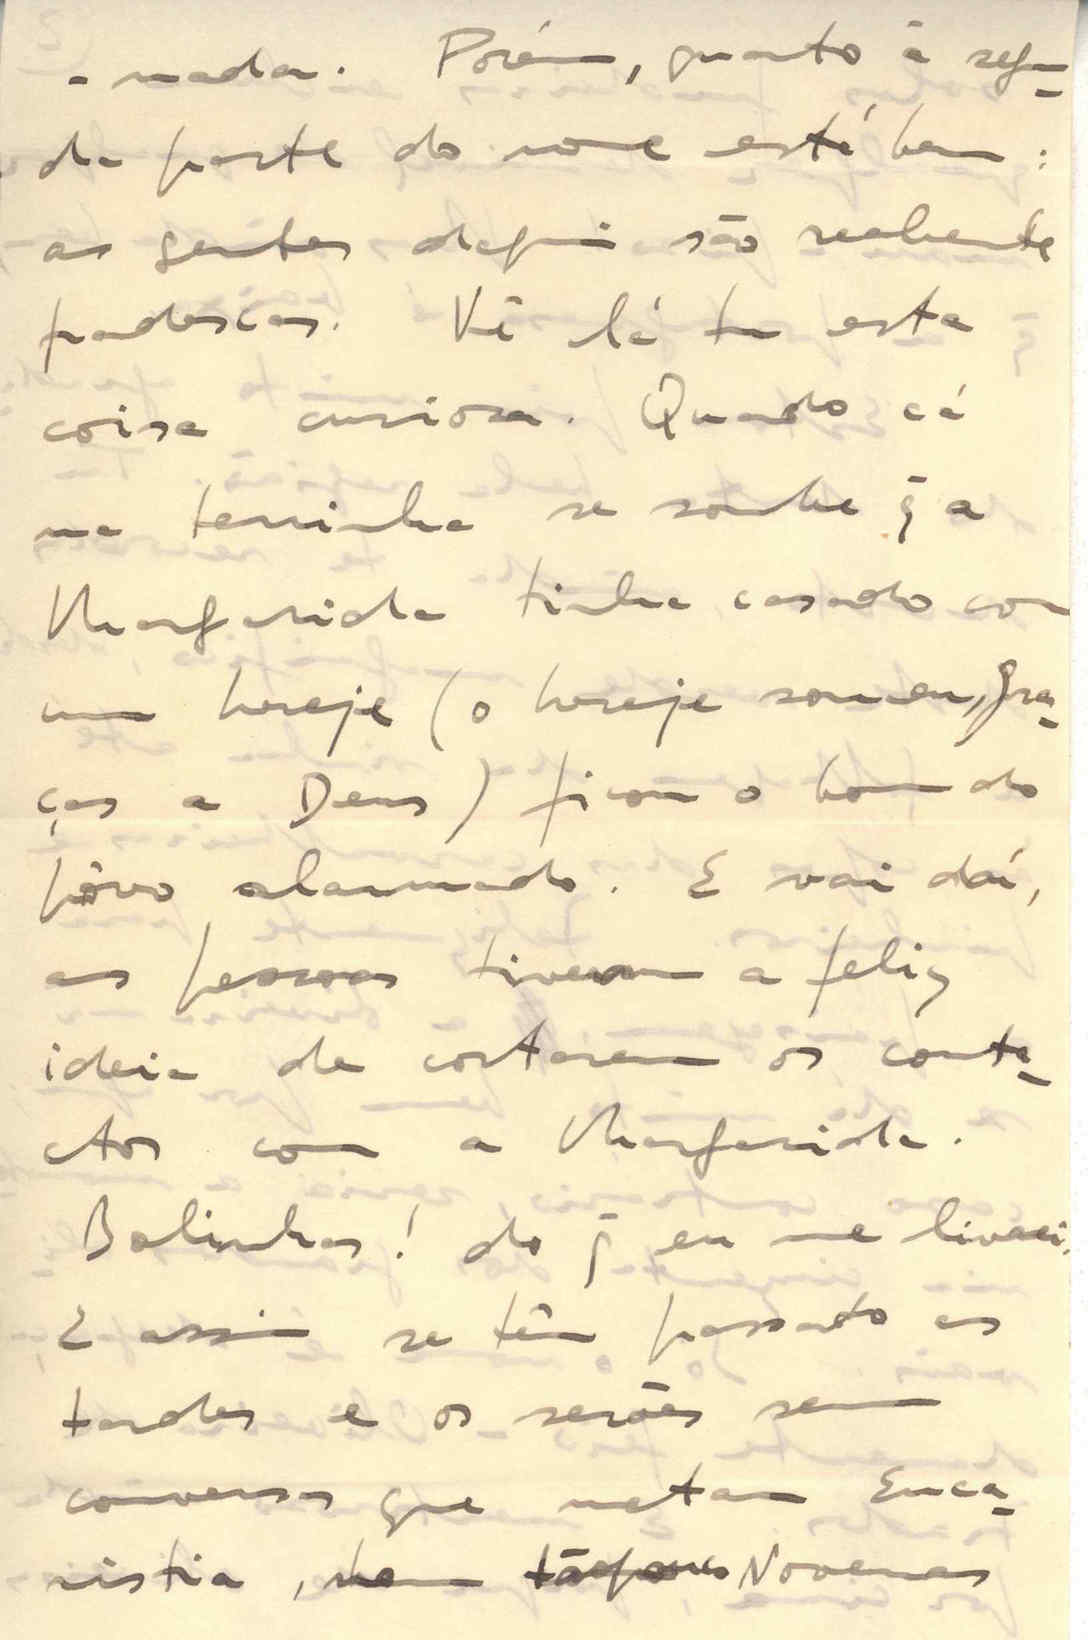 -nada. Porém, quanto à segun-
da parte do nome está bem:
as gentes daqui são realmente
fradescas. Vê lá tu esta
coisa curiosa. Quando cá
na terrinha se soube q̃ a
Margarida tinha casado com
um hereje (o hereje sou eu, gra-
ças a Deus) ficou o bom do
pôvo alarmado. E vai daí,
as pessoas tiveram a feliz
ideia de cortarem os conta-
ctos com a Margarida.
Bolinhas! do q̃ eu me livrei.
E assim se têm passado as
tardes e os serões sem
conversas que metam Euca-
ristia, nem Novenas